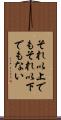 それ以上で
もそれ以下
でもない